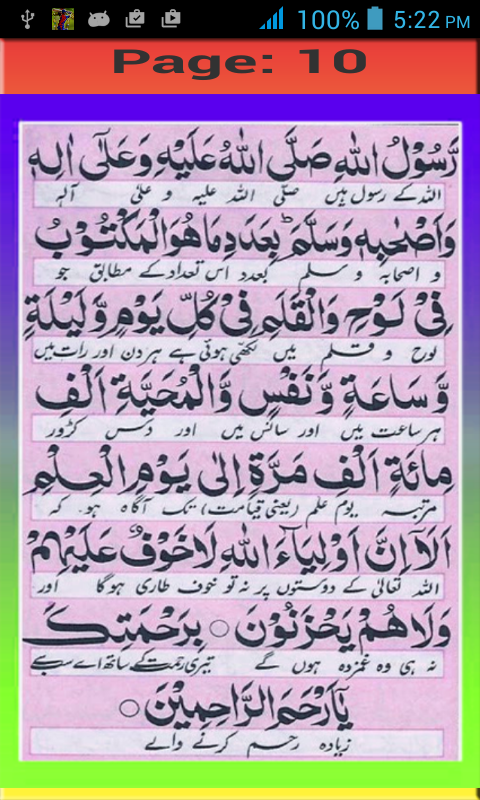 100% 5:22 PM
Page: 10
رَّسُوْلُ اللهِ صَلَّى اللهُ عَلَيْهِ وَعَلٰٓى اٰلِهٖ
اللہ کے رسول ہیں صلی اللہ علیہ و علیٰ آلہٖ
وَاَصْحٰبِهٖ وَسَلَّمَ ؕ بِعَدَدِ مَا هُوَالْمَكْتُوْبُ
و اصحابہٖ و سلم بعدد اس تعداد کے مطابق جو
فِیْ لَوْحِ وَالْقَلَمِ فِیْ كُلِّ يَوْمٍ وَّلَيْلَةٍ
لوح و قلم میں لکھی ہوئی ہے ہر دن اور رات میں
وَّسَاعَةٍ وَّنَفْسٍ وَّالْمُحَيَّةِ اَلْفِ
ہر ساعت میں اور سانس میں اور دس کڑور
مِائَةِ اَلْفِ مَرَّةٍ اِلٰى يَوْمِ الْعِلْمِ
مرتبہ یوم علم (یعنی قیامت) تک آگاہ ہو کہ
اَلَآ اِنَّ اَوْلِيَآءَ اللهِ لَاخَوْفٌ عَلَيْهِمْ
اللہ تعالٰی کے دوستوں پر نہ تو خوف طاری ہوگا اور
وَلَا هُمْ يَحْزَنُوْنَ ○ بِرَحْمَتِكَ
نہ ہی وہ غمزدہ ہوں گے تیری رحمت کے ساتھ اے سب سے
يَآ اَرْحَمَ الرَّاحِمِيْنَ ○
زیادہ رحم کرنے والے